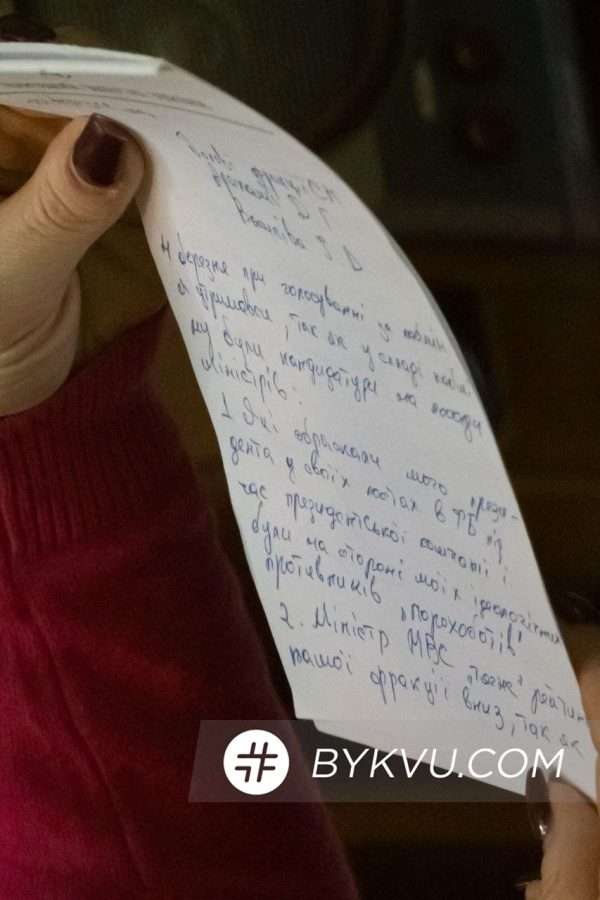 Голові фракції СН
Арахамії Д. Г.
4 березня при голосуванні за кабмін
я утримався, так як у складі кабі-
ну були кандидатури на посади
міністрів:
1. Які ображали мого прези-
дента у своїх постах в ФБ під
час президентської кампанії і
були на стороні моїх ідеологічних
противників "порохоботів"
2. Міністр МВС "тягне" рейтинг
нашої фракції вниз, так як
BYKVU.COM